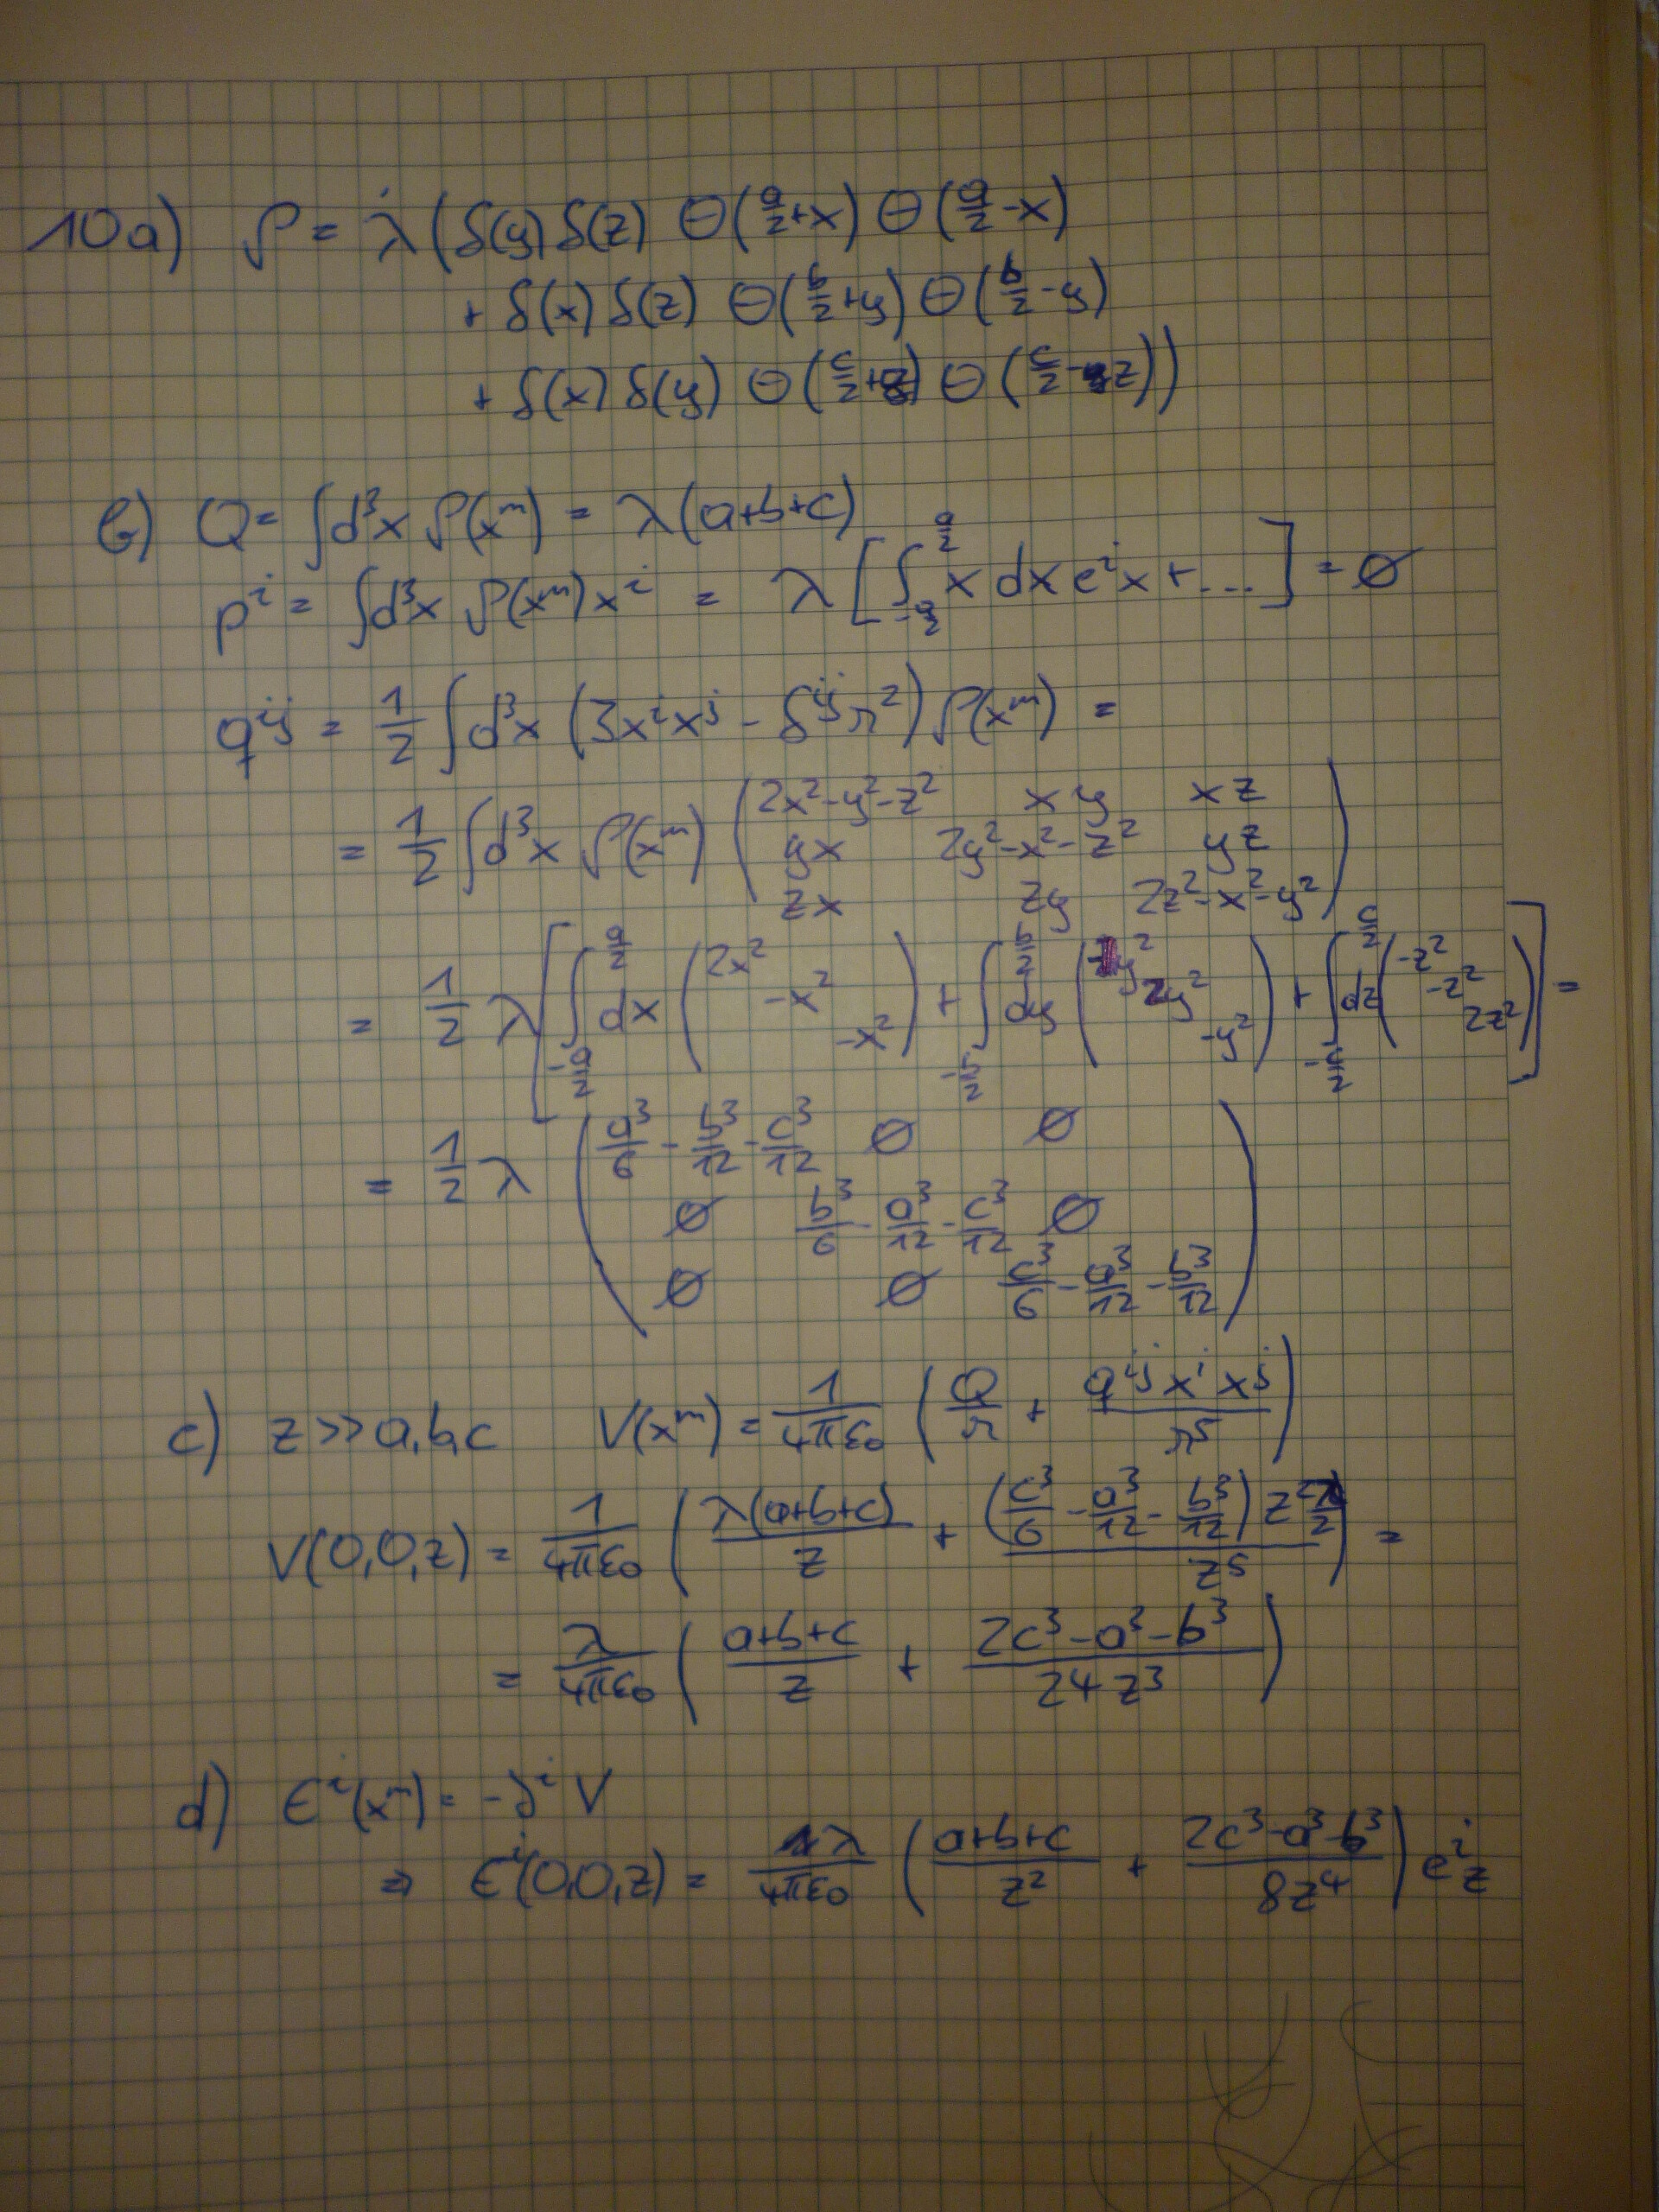 10a) ρ = λ (δ(y) δ(z) Θ(a/2+x) Θ(a/2-x)
+ δ(x) δ(z) Θ(b/2+y) Θ(b/2-y)
+ δ(x) δ(y) Θ(c/2+z) Θ(c/2-z))
b) Q = ∫d³x ρ(xᵐ) = λ(a+b+c)
pⁱ = ∫d³x ρ(xᵐ) xⁱ = λ [∫_{-a/2}^{a/2} x dx eⁱx + ...] = 0
qⁱʲ = 1/2 ∫d³x (3xⁱxʲ - δⁱʲr²) ρ(xᵐ) =
= 1/2 ∫d³x ρ(xᵐ) (2x²-y²-z² xy xz
yx 2y²-x²-z² yz
zx zy 2z²-x²-y²)
= 1/2 λ [∫_{-a/2}^{a/2} dx (2x² -x² -x²) + ∫_{-b/2}^{b/2} dy (-y² 2y² -y²) + ∫_{-c/2}^{c/2} dz (-z² -z² 2z²)] =
= 1/2 λ (a³/6 - b³/12 - c³/12 0 0
0 b³/6 - a³/12 - c³/12 0
0 0 c³/6 - a³/12 - b³/12)
c) z >> a,b,c V(xᵐ) = 1/4πε₀ (Q/r + qⁱʲxⁱxʲ/r⁵)
V(0,0,z) = 1/4πε₀ (λ(a+b+c)/z + (c³/6 - a³/12 - b³/12) z² λ/2 / z⁵) =
= λ/4πε₀ (a+b+c/z + 2c³-a³-b³/24z³)
d) Eⁱ(xᵐ) = -∂ⁱ V
⇒ Eⁱ(0,0,z) = λ/4πε₀ (a+b+c/z² + 2c³-a³-b³/8z⁴) eⁱz